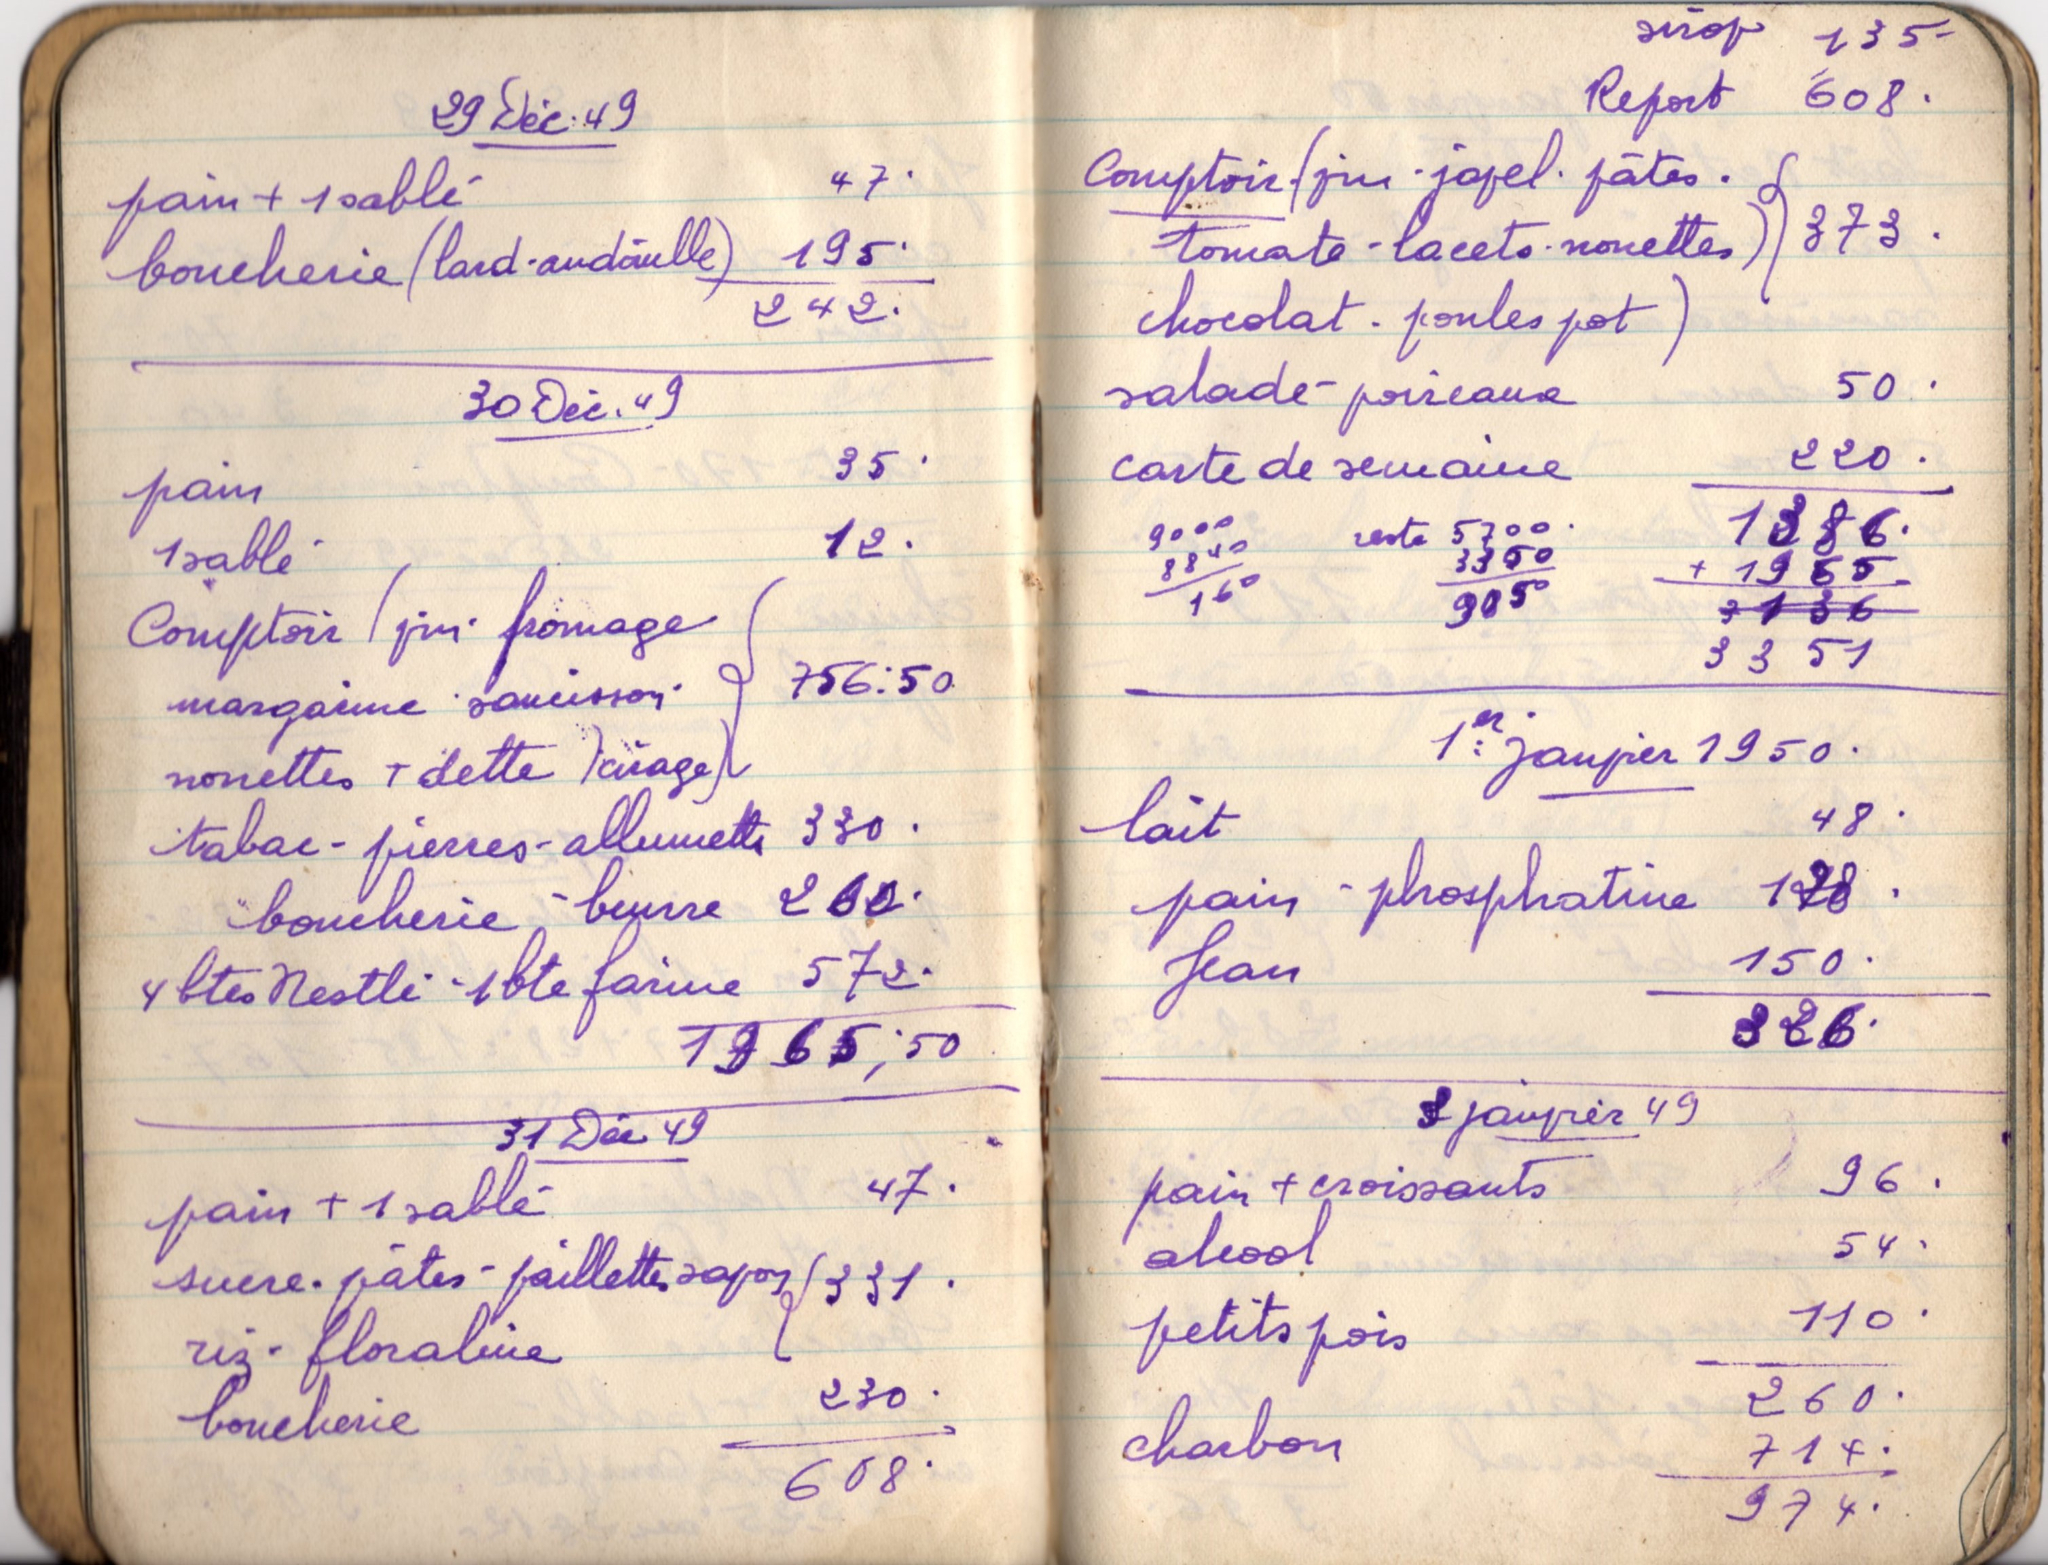 29 Déc. 49
pain + 1 sablé 47.
boucherie (lard-andouille) 195.
242.
30 Déc. 49
pain 35.
1 sablé 12.
Comptoir (jui. fromage
margarine saucisson. 756:50
nonettes + dette (cirage)
tabac - pierres - allumettes 330.
boucherie - beurre 260.
4 btes Nestlé - 1 bte farine 572.
1965,50
31 Déc 49
pain + 1 sablé 47.
sucre. pâtes - paillettes savon 331.
riz - floraline
boucherie 230.
608.
sirop 135-
Report 608.
Comptoir (jui - javel. pâtes.
tomate - lacets - nonettes) 373.
chocolat - poules pot)
salade - poireaux 50.
carte de semaine 220.
9000 reste 5700. 1386.
8840 3350 + 1965
160 905
3351
1er janvier 1950.
lait 48.
pain - phosphatine 128.
Jean 150.
326.
janvier 49
pain + croissants 96.
alcool 54.
petits pois 110.
260.
charbon 714.
974.